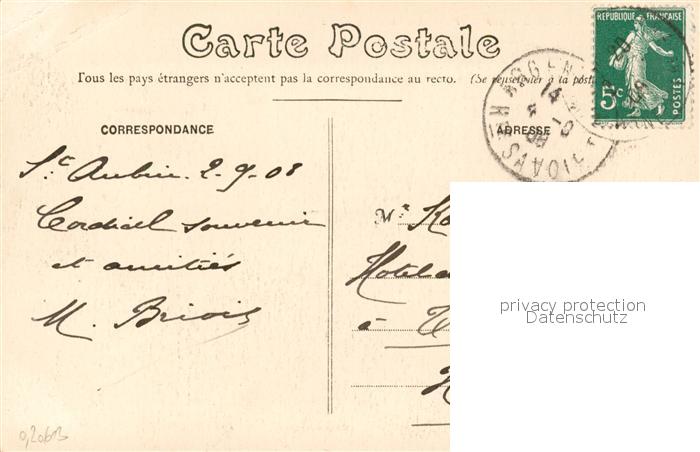 Carte Postale
Tous les pays étrangers n'acceptent pas la correspondance au recto. (Se renseigner à la poste
RÉPUBLIQUE FRANÇAISE
5c
POSTES
CORRESPONDANCE
ADRESSE
St Aubin. 2-9-08
Cordial souvenir
et amitiés
M. Briois
Mr
Hotel
à
privacy protection
Datenschutz